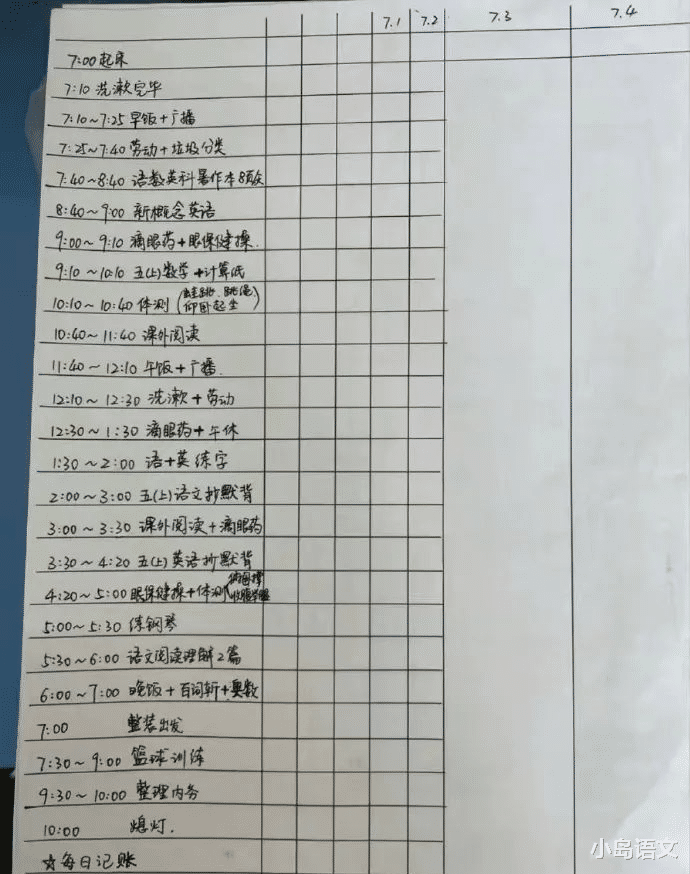 7.1 7.2 7.3 7.4
7:00 起床
7:10 洗漱完毕
7:10~7:25 早饭+广播
7:25~7:40 劳动+垃圾分类
7:40~8:40 语数英科暑作本8页
8:40~9:00 新概念英语
9:00~9:10 滴眼药+眼保健操.
9:10~10:10 五(上)数学+计算纸
10:10~10:40 体测(蛙跳、跳绳、
仰卧起坐)
10:40~11:40 课外阅读
11:40~12:10 午饭+广播.
12:10~12:30 洗漱+劳动
12:30~1:30 滴眼药+午休
1:30~2:00 语+英练字
2:00~3:00 五(上)语文抄默背
3:00~3:30 课外阅读+滴眼药
3:30~4:20 五(上)英语抄默背
4:20~5:00 眼保健操+体测(俯卧撑
5:00~5:30 练钢琴
5:30~6:00 语文阅读理解2篇
6:00~7:00 晚饭+百词斩+奥数
7:00 整装出发
7:30~9:00 篮球训练
9:30~10:00 整理内务
10:00 熄灯.
☆每日记账
小岛语文